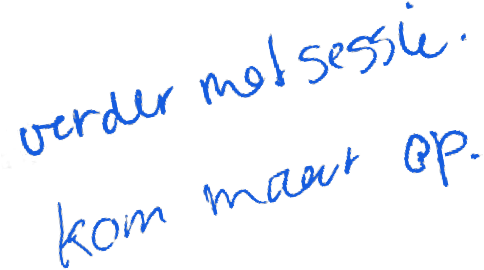 verder met sessie.
kom maar op.